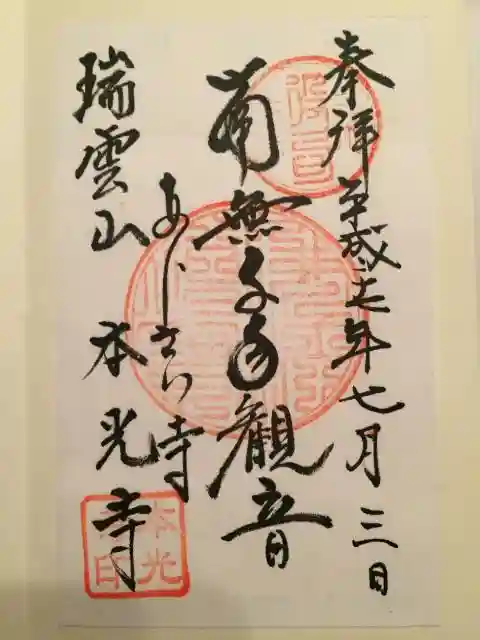 奉拝 平成廿七年七月三日
南無 観音
あじさい寺
瑞雲山 本光寺